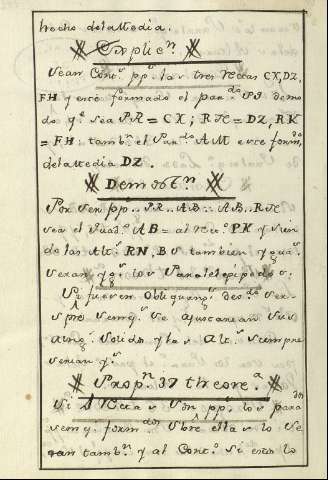 hecho dela Media.
Explic.n
Sean Cont.s pp.s las tres Rectas CX, DZ,
FH y esté formado el par.do PI de mo
do q.e sea PR = CX; RX = DZ, RK
= FH: tamb.n el Par.do AM esté form.do
dela Media DZ.
Demost.n
Por ser pp.. PR.. AB.. AB.. RX
sea el Quad.o AB = al rect.o PK y sien
do las Alt.s RN, BS tambien yg.s
seran yg.s los Paralelepipedos.
Si fueren Obliquang.s de do ser
pre semej.s se ajustarian sus
ang.s solidos y las Alt.s siempre
serian yg.s
Prop.n 37 theore.a
Si 4 Rectas son pp.s los para dos
semej. form.dos sobre ellas lo se
ran tamb.n y al Cont.o si esto lo